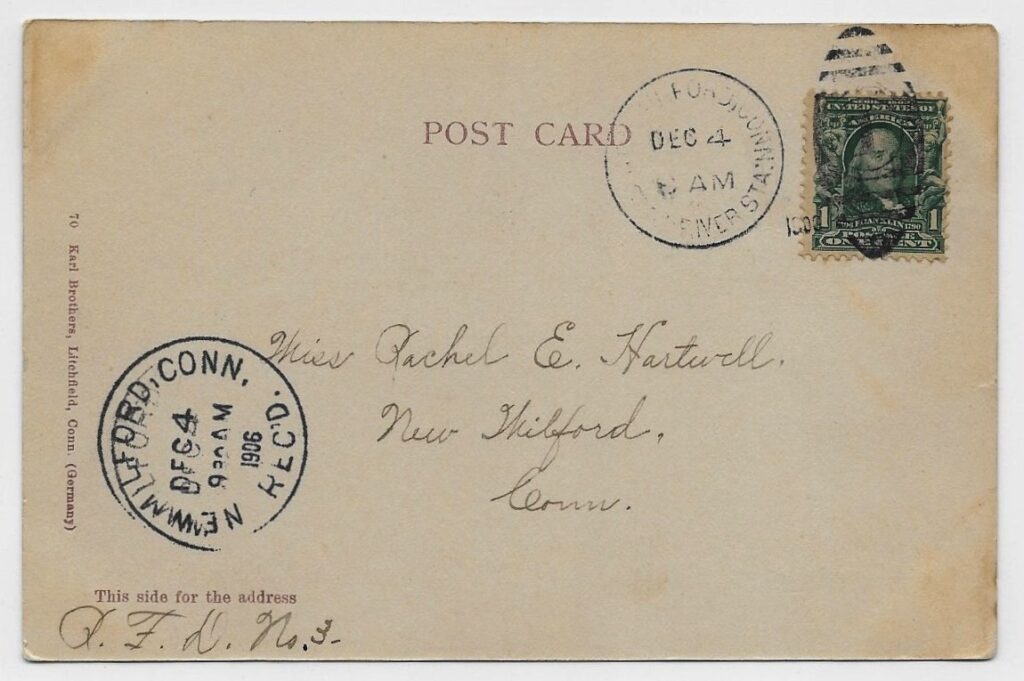 POST CARD
FORD, CONN.
DEC 4
AM
RIVER STA.
SERIES 1902
UNITED STATES OF
AMERICA
1 1
POSTAGE
ONE CENT
70 Karl Brothers, Litchfield, Conn. (Germany)
Miss Rachel E. Hartwell.
New Milford,
Conn.
NEW MILFORD, CONN.
DEC 4
930AM
1906
REC'D.
This side for the address
R. F. D. No. 3-